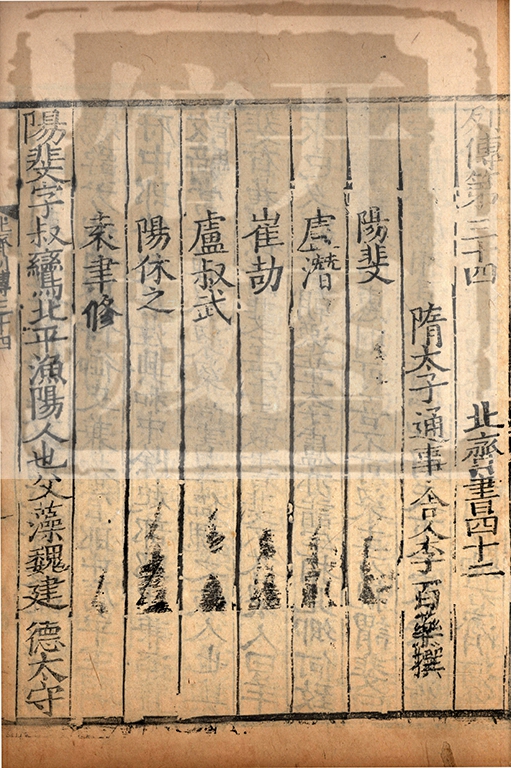 列傳第三十四 北齊書四十二
隋太子通事舍人李百藥撰
陽斐
盧潛
崔劼
盧叔武
陽休之
袁聿修
陽斐字叔鸞北平漁陽人也父藻魏建德太守